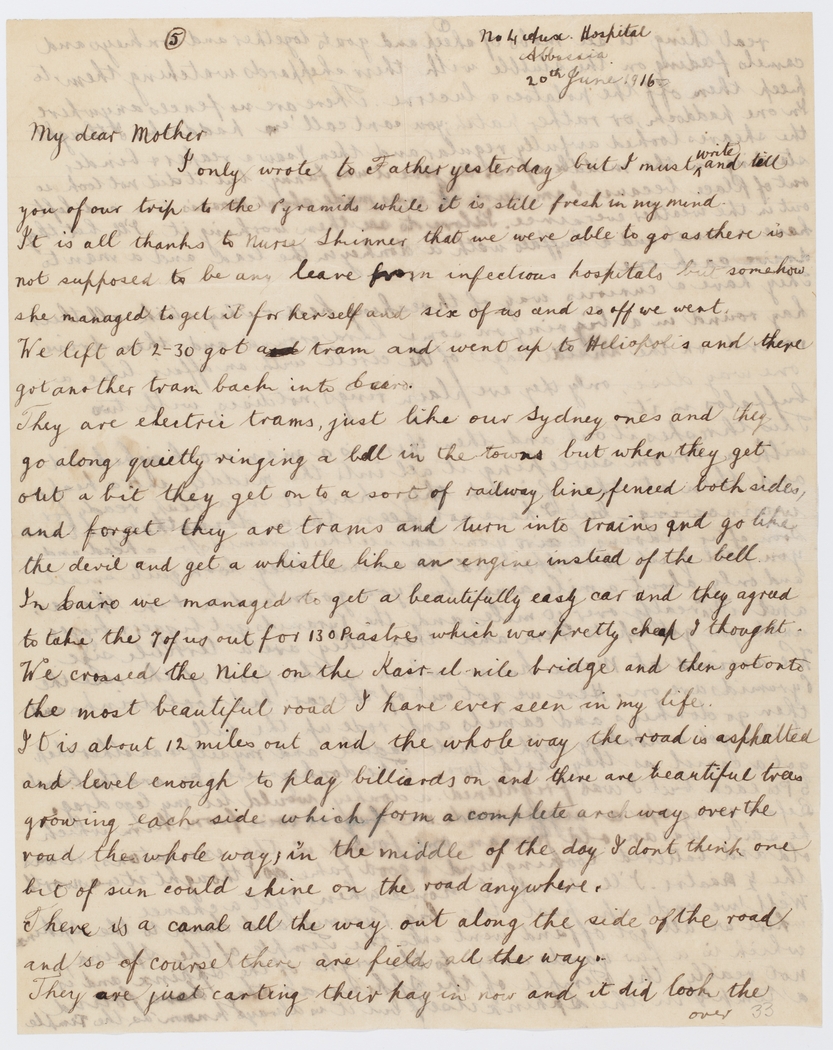 5
No 4 Aux. Hospital
Abbassia
20th June 1916
My dear Mother
I only wrote to Father yesterday but I must write and tell
you of our trip to the Pyramids while it is still fresh in my mind.
It is all thanks to Nurse Skinner that we were able to go as there is
not supposed to be any leave from infectious hospitals but somehow
she managed to get it for herself and six of us and so off we went.
We left at 2-30 got a tram and went up to Heliopolis and there
got another tram back into Cairo.
They are electric trams, just like our Sydney ones and they
go along quietly ringing a bell in the towns but when they get
out a bit they get on to a sort of railway line, fenced both sides,
and forget they are trams and turn into trains and go like
the devil and get a whistle like an engine instead of the bell.
In Cairo we managed to get a beautifully easy car and they agreed
to take the 7 of us out for 130 Piastres which was pretty cheap I thought.
We crossed the Nile on the Kasr-el-nile bridge and then got onto
the most beautiful road I have ever seen in my life.
It is about 12 miles out and the whole way the road is asphalted
and level enough to play billiards on and there are beautiful trees
growing each side which form a complete archway over the
road the whole way, in the middle of the day I dont think one
bit of sun could shine on the road anywhere.
There is a canal all the way out along the side of the road
and so of course there are fields all the way.
They are just carting their hay in now and it did look the
over 33